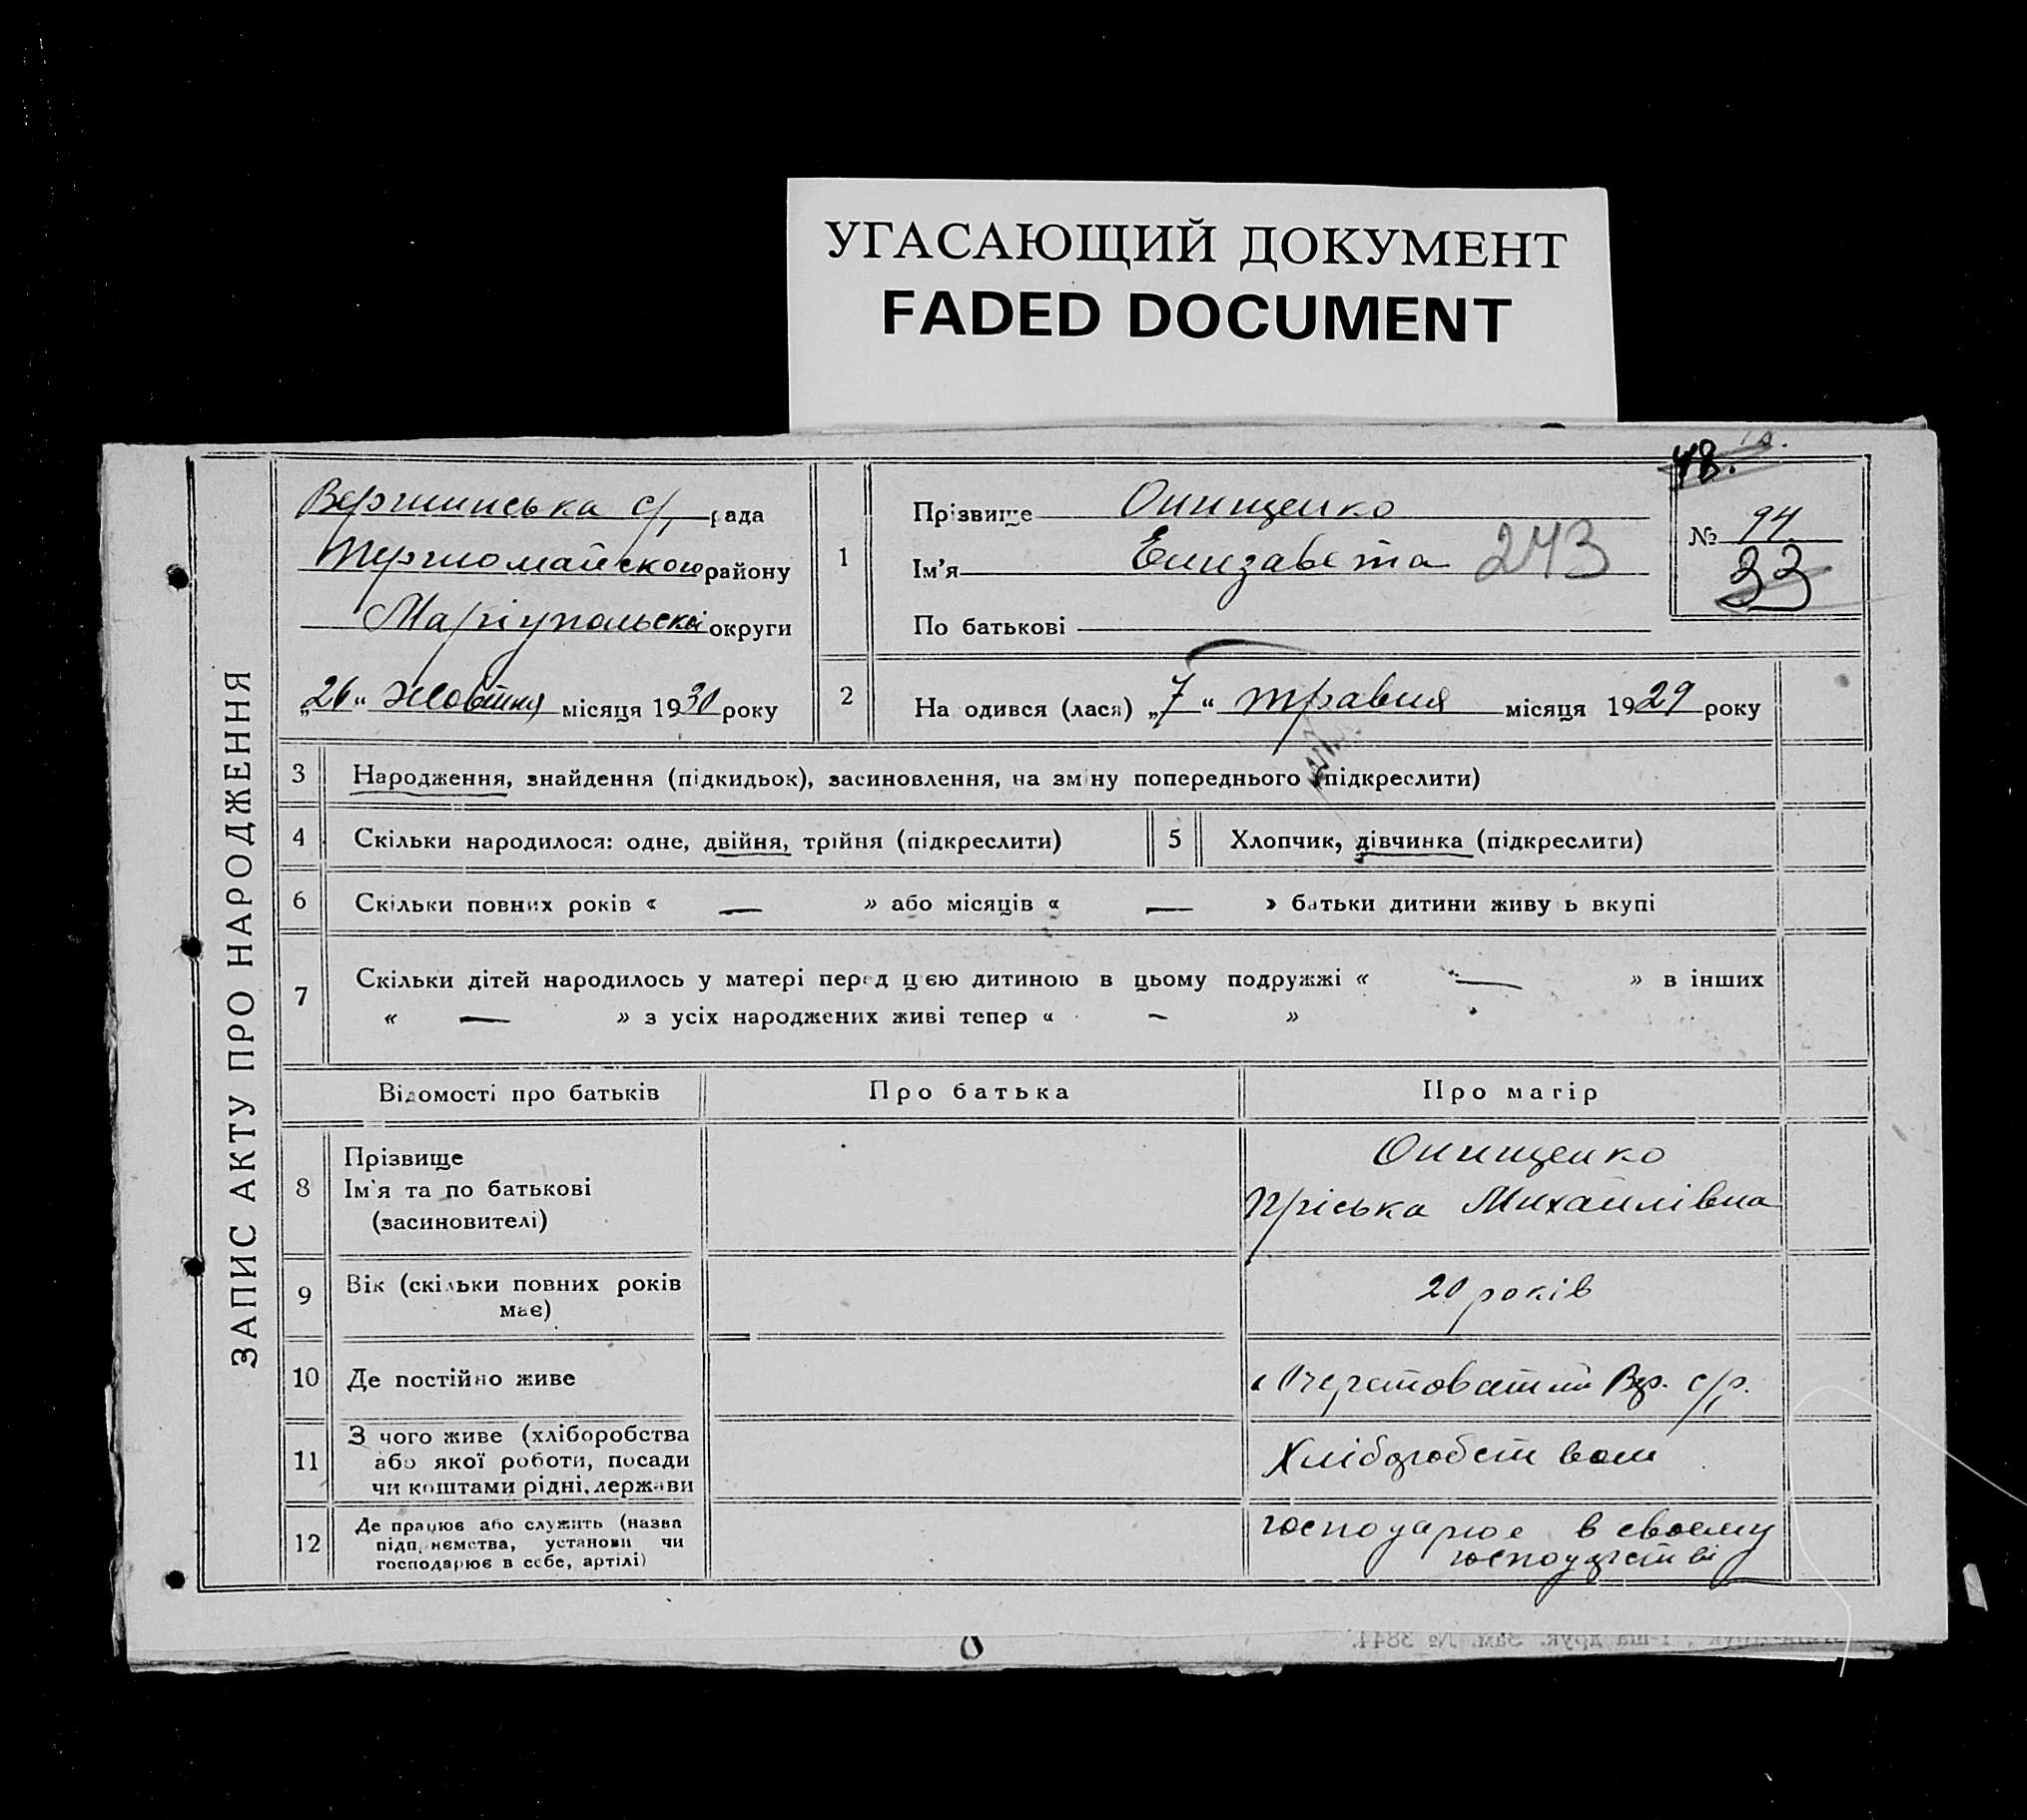 УГАСАЮЩИЙ ДОКУМЕНТ
FADED DOCUMENT
ЗАПИС АКТУ ПРО НАРОДЖЕННЯ
48.
Вершинська с/ рада
Першомайського району
Маріупольскі округи
„26“ Жовтня місяця 1930 року
1
Прізвище Онищенко
Ім'я Елизавета 243
По батькові
№ 94.
33
2
На одився (лася) „7“ травня місяця 1929 року
3 Народження, знайдення (підкидьок), засиновлення, на зміну попереднього (підкреслити)
4 Скільки народилося: одне, двійня, трійня (підкреслити)
5 Хлопчик, дівчинка (підкреслити)
6 Скільки повних років « — » або місяців « — » батьки дитини живу ь вкупі
7 Скільки дітей народилось у матері перед цією дитиною в цьому подружжі « — » в інших
« — » з усіх народжених живі тепер « – »
Відомості про батьків
Про батька
Про матір
8
Прізвище
Ім'я та по батькові
(засиновителі)
Онищенко
Пріська Михайлівна
9
Вік (скільки повних років
має)
20 років
10 Де постійно живе
Очеретоватий Вер. с/р.
11
З чого живе (хліборобства
або якої роботи, посади
чи коштами рідні, держави
Хліборобством
12
Де працює або служить (назва
підприємства, установи чи
господарює в себе, артілі)
господарює в своему
господарстві
1-ша друк. Зам. № 3844.